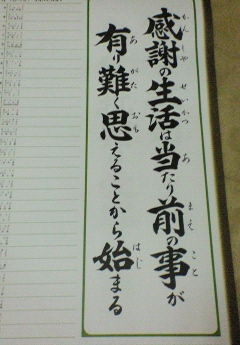 感謝の生活は当たり前の事が
有り難く思えることから始まる